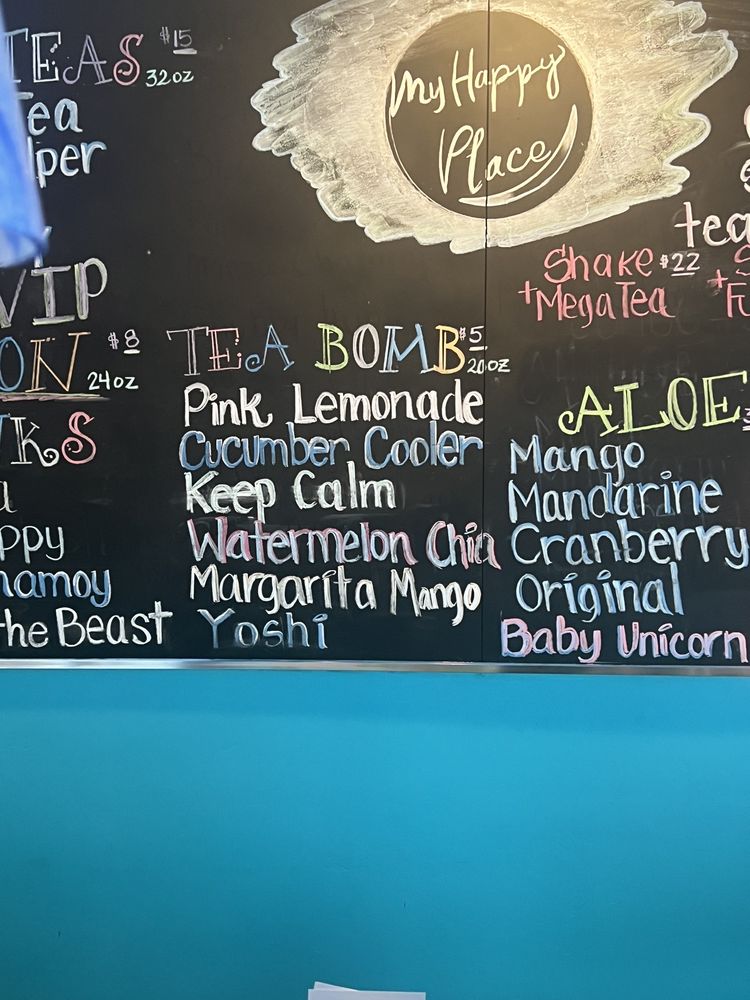 TEAS $15
32oz
Tea
VIP
ON $8
24oz
KS
ppy
hamoy
the Beast
My Happy
Place
TEA BOMB $5
20oz
Pink Lemonade
Cucumber Cooler
Keep Calm
Watermelon Chia
Margarita Mango
Yoshi
tea
Shake $22
+MegaTea
ALOE
Mango
Mandarine
Cranberry
Original
Baby Unicorn